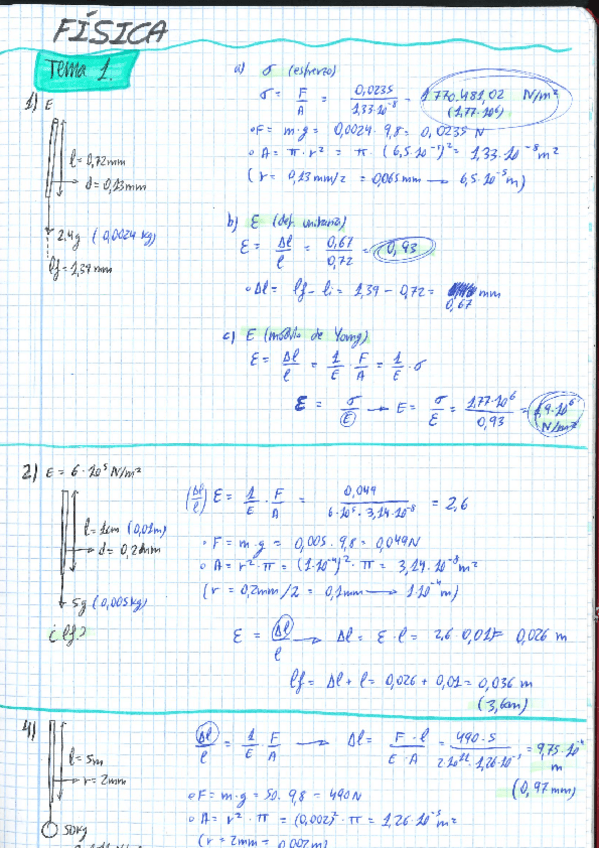 FÍSICA
Tema 1.
1) E
l = 0,72mm
d = 0,13mm
2.4g (0,0024 kg)
lf = 1,39 mm
a) σ (esfuerzo)
σ = F/A = 0,0235/1,33·10⁻⁸ = 1.770.481,02 N/m²
(1,77·10⁶)
F = m·g = 0,0024·9,8 = 0,0235 N
A = π·r² = π·(6,5·10⁻⁵)² = 1,33·10⁻⁸ m²
(r = 0,13mm/2 = 0,065mm → 6,5·10⁻⁵ m)
b) Ɛ (def. unitaria)
Ɛ = Δl/l = 0,67/0,72 = 0,93
Δl = lf - li = 1,39 - 0,72 = mm
0,67
c) E (módulo de Young)
Ɛ = Δl/l = 1/E · F/A = 1/E · σ
Ɛ = σ/E → E = σ/Ɛ = 1,77·10⁶/0,93 = 1,9·10⁶
N/m²
2) E = 6·10⁵ N/m²
l = 1cm (0,01m)
d = 0,2mm
5g (0,005kg)
¿lf?
(Δl/l) Ɛ = 1/E · F/A = 0,049/6·10⁵·3,14·10⁻⁸ = 2,6
F = m·g = 0,005·9,8 = 0,049N
A = r²·π = (1·10⁻⁴)²·π = 3,14·10⁻⁸ m²
(r = 0,2mm/2 = 0,1mm → 1·10⁻⁴ m)
Ɛ = Δl/l → Δl = Ɛ·l = 2,6·0,01 = 0,026 m
lf = Δl + l = 0,026 + 0,01 = 0,036 m
(3,6cm)
4)
l = 5m
r = 2mm
50kg
Δl/l = 1/E · F/A → Δl = F·l/E·A = 490·5 = 9,75·10⁻⁴
m
(0,97mm)
F = m·g = 50·9,8 = 490N
A = r²·π = (0,002)²·π = 1,26·10⁻⁵ m²
(r = 2mm = 0,002m)